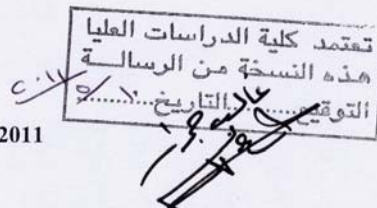 تعتمد كلية الدراسات العليا
هذه النسخة من الرسالــة
التوقيع............التاريخ............
2011